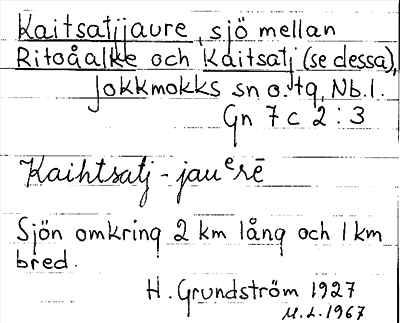 Kaitsatjjaure, sjö mellan
Ritoåalke och Kaitsatj (se dessa),
Jokkmokks sn o. tg, Nb.l.
Gn 7 c 2 : 3
Kaihtsatj - jauᵉrē
Sjön omkring 2 km lång och 1 km
bred.
H. Grundström 1927
M.L. 1967